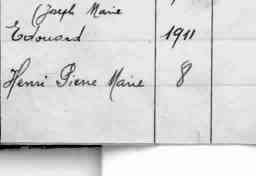 (Joseph Marie
Edouard 1911
Henri Pierre Marie 8